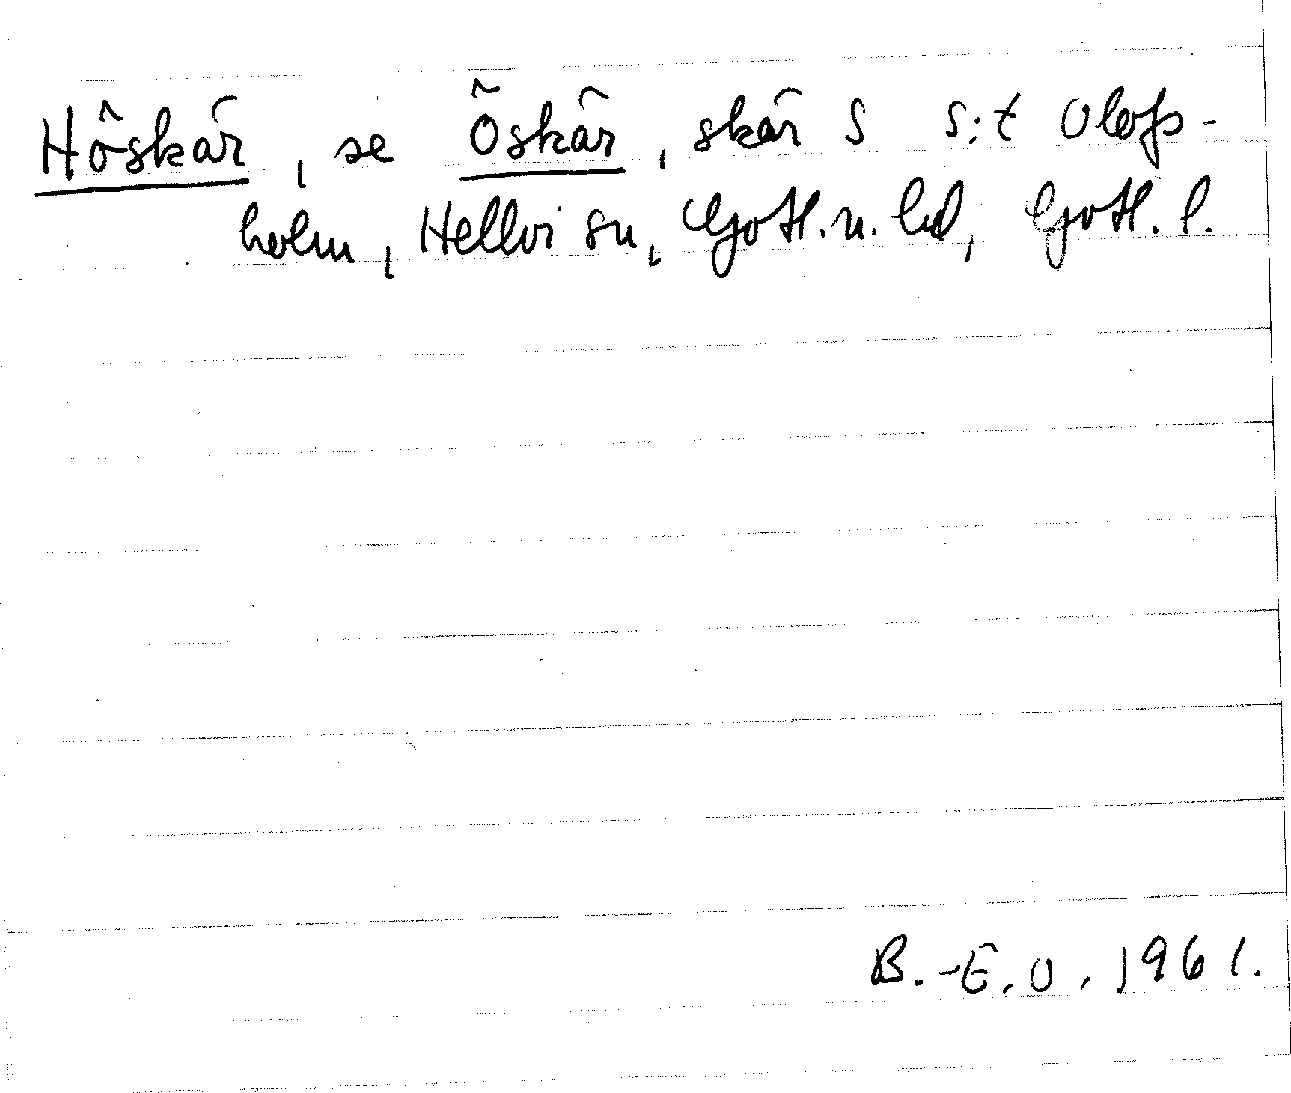 Höskär, se Öskär, skär S S:t Olofs-
holm, Hellvi sn, Gotl. n. hd, Gotl. l.
B.-E. O. 1961.